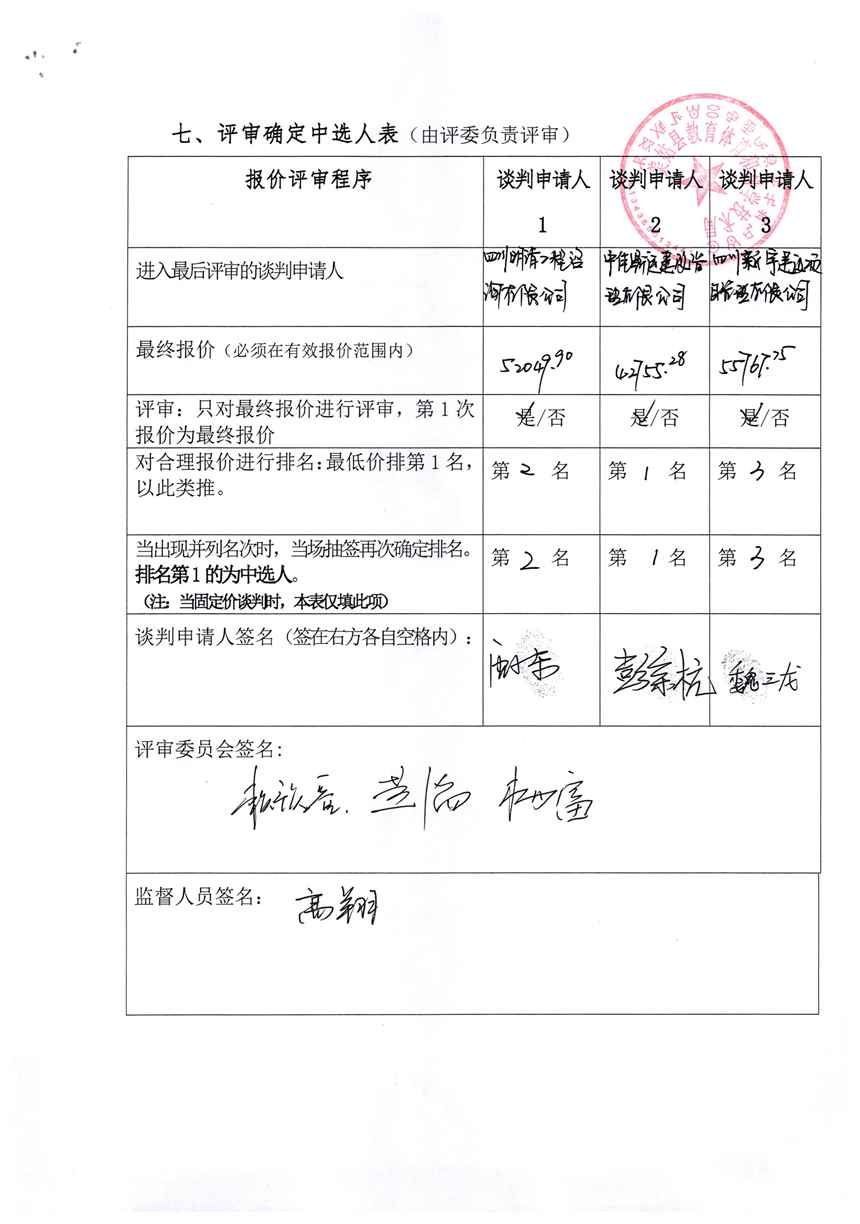 七、评审确定中选人表（由评委负责评审）
报价评审程序
谈判申请人 1
谈判申请人 2
谈判申请人 3
进入最后评审的谈判申请人
四川 工程咨
询有限公司
中佳 建设管
理有限公司
四川 宇建设项
目管理有限公司
最终报价（必须在有效报价范围内）
52049.90
42755.28
55767.75
评审：只对最终报价进行评审，第1次
报价为最终报价
是/否
是/否
是/否
对合理报价进行排名：最低价排第1名，
以此类推。
第 2 名
第 1 名
第 3 名
当出现并列名次时，当场抽签再次确定排名。
排名第1的为中选人。
（注：当固定价谈判时，本表仅填此项）
第 2 名
第 1 名
第 3 名
谈判申请人签名（签在右方各自空格内）：
魏三龙
评审委员会签名：
监督人员签名：
高翔
县教育体育